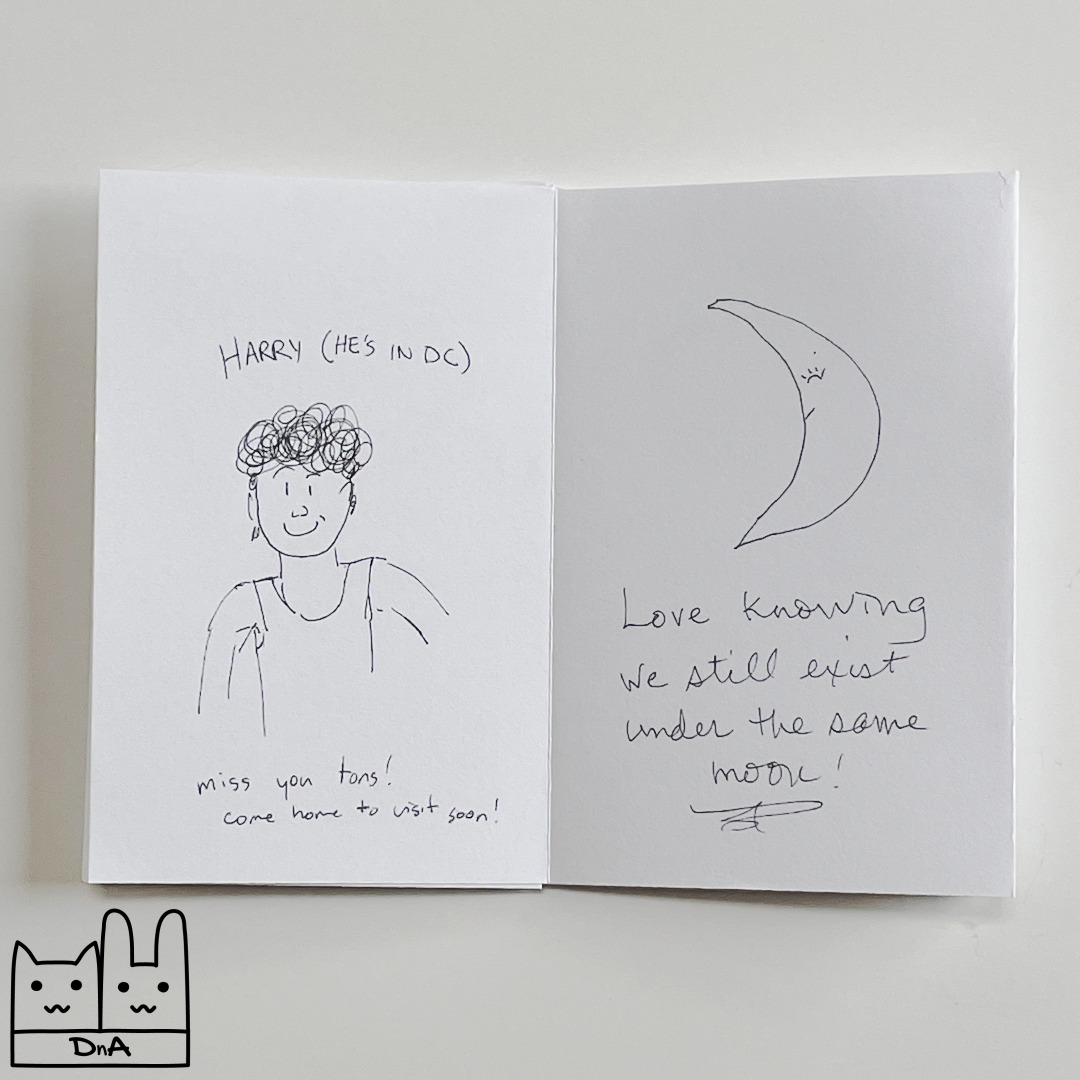 HARRY (HE'S IN DC)
miss you tons!
come home to visit soon!
Love knowing
we still exist
under the same
moon!
DnA